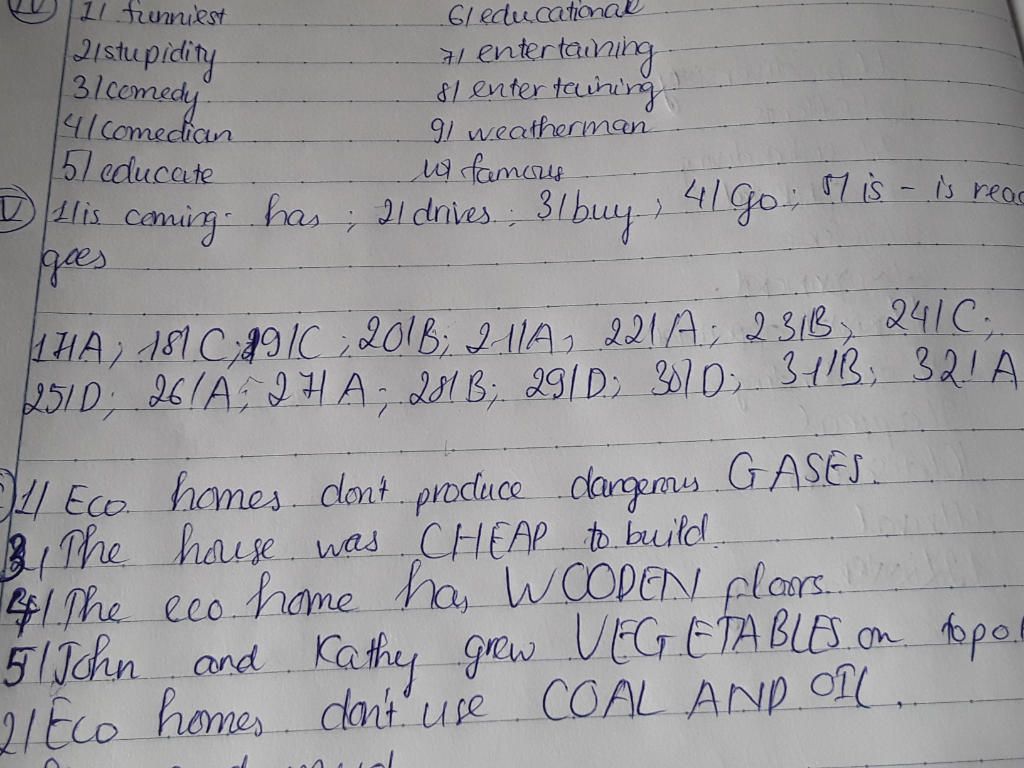 IV 1/ funniest 6/ educational
2/ stupidity 7/ entertaining
3/ comedy 8/ entertaining
4/ comedian 9/ weatherman
5/ educate 10/ famous
V 1/ is coming - has ; 2/ drives ; 3/ buy ; 4/ Go ; 5/ is - is read
goes
17/A ; 18/C ; 19/C ; 20/B ; 21/A ; 22/A ; 23/B ; 24/C ;
25/D ; 26/A ; 27/A ; 28/B ; 29/D ; 30/D ; 31/B ; 32/A
1/ Eco homes don't produce dangerous GASES.
3/ The house was CHEAP to build.
4/ The eco home has WOODEN floors.
5/ John and Kathy grew VEGETABLES on top of
2/ Eco homes don't use COAL AND OIL.